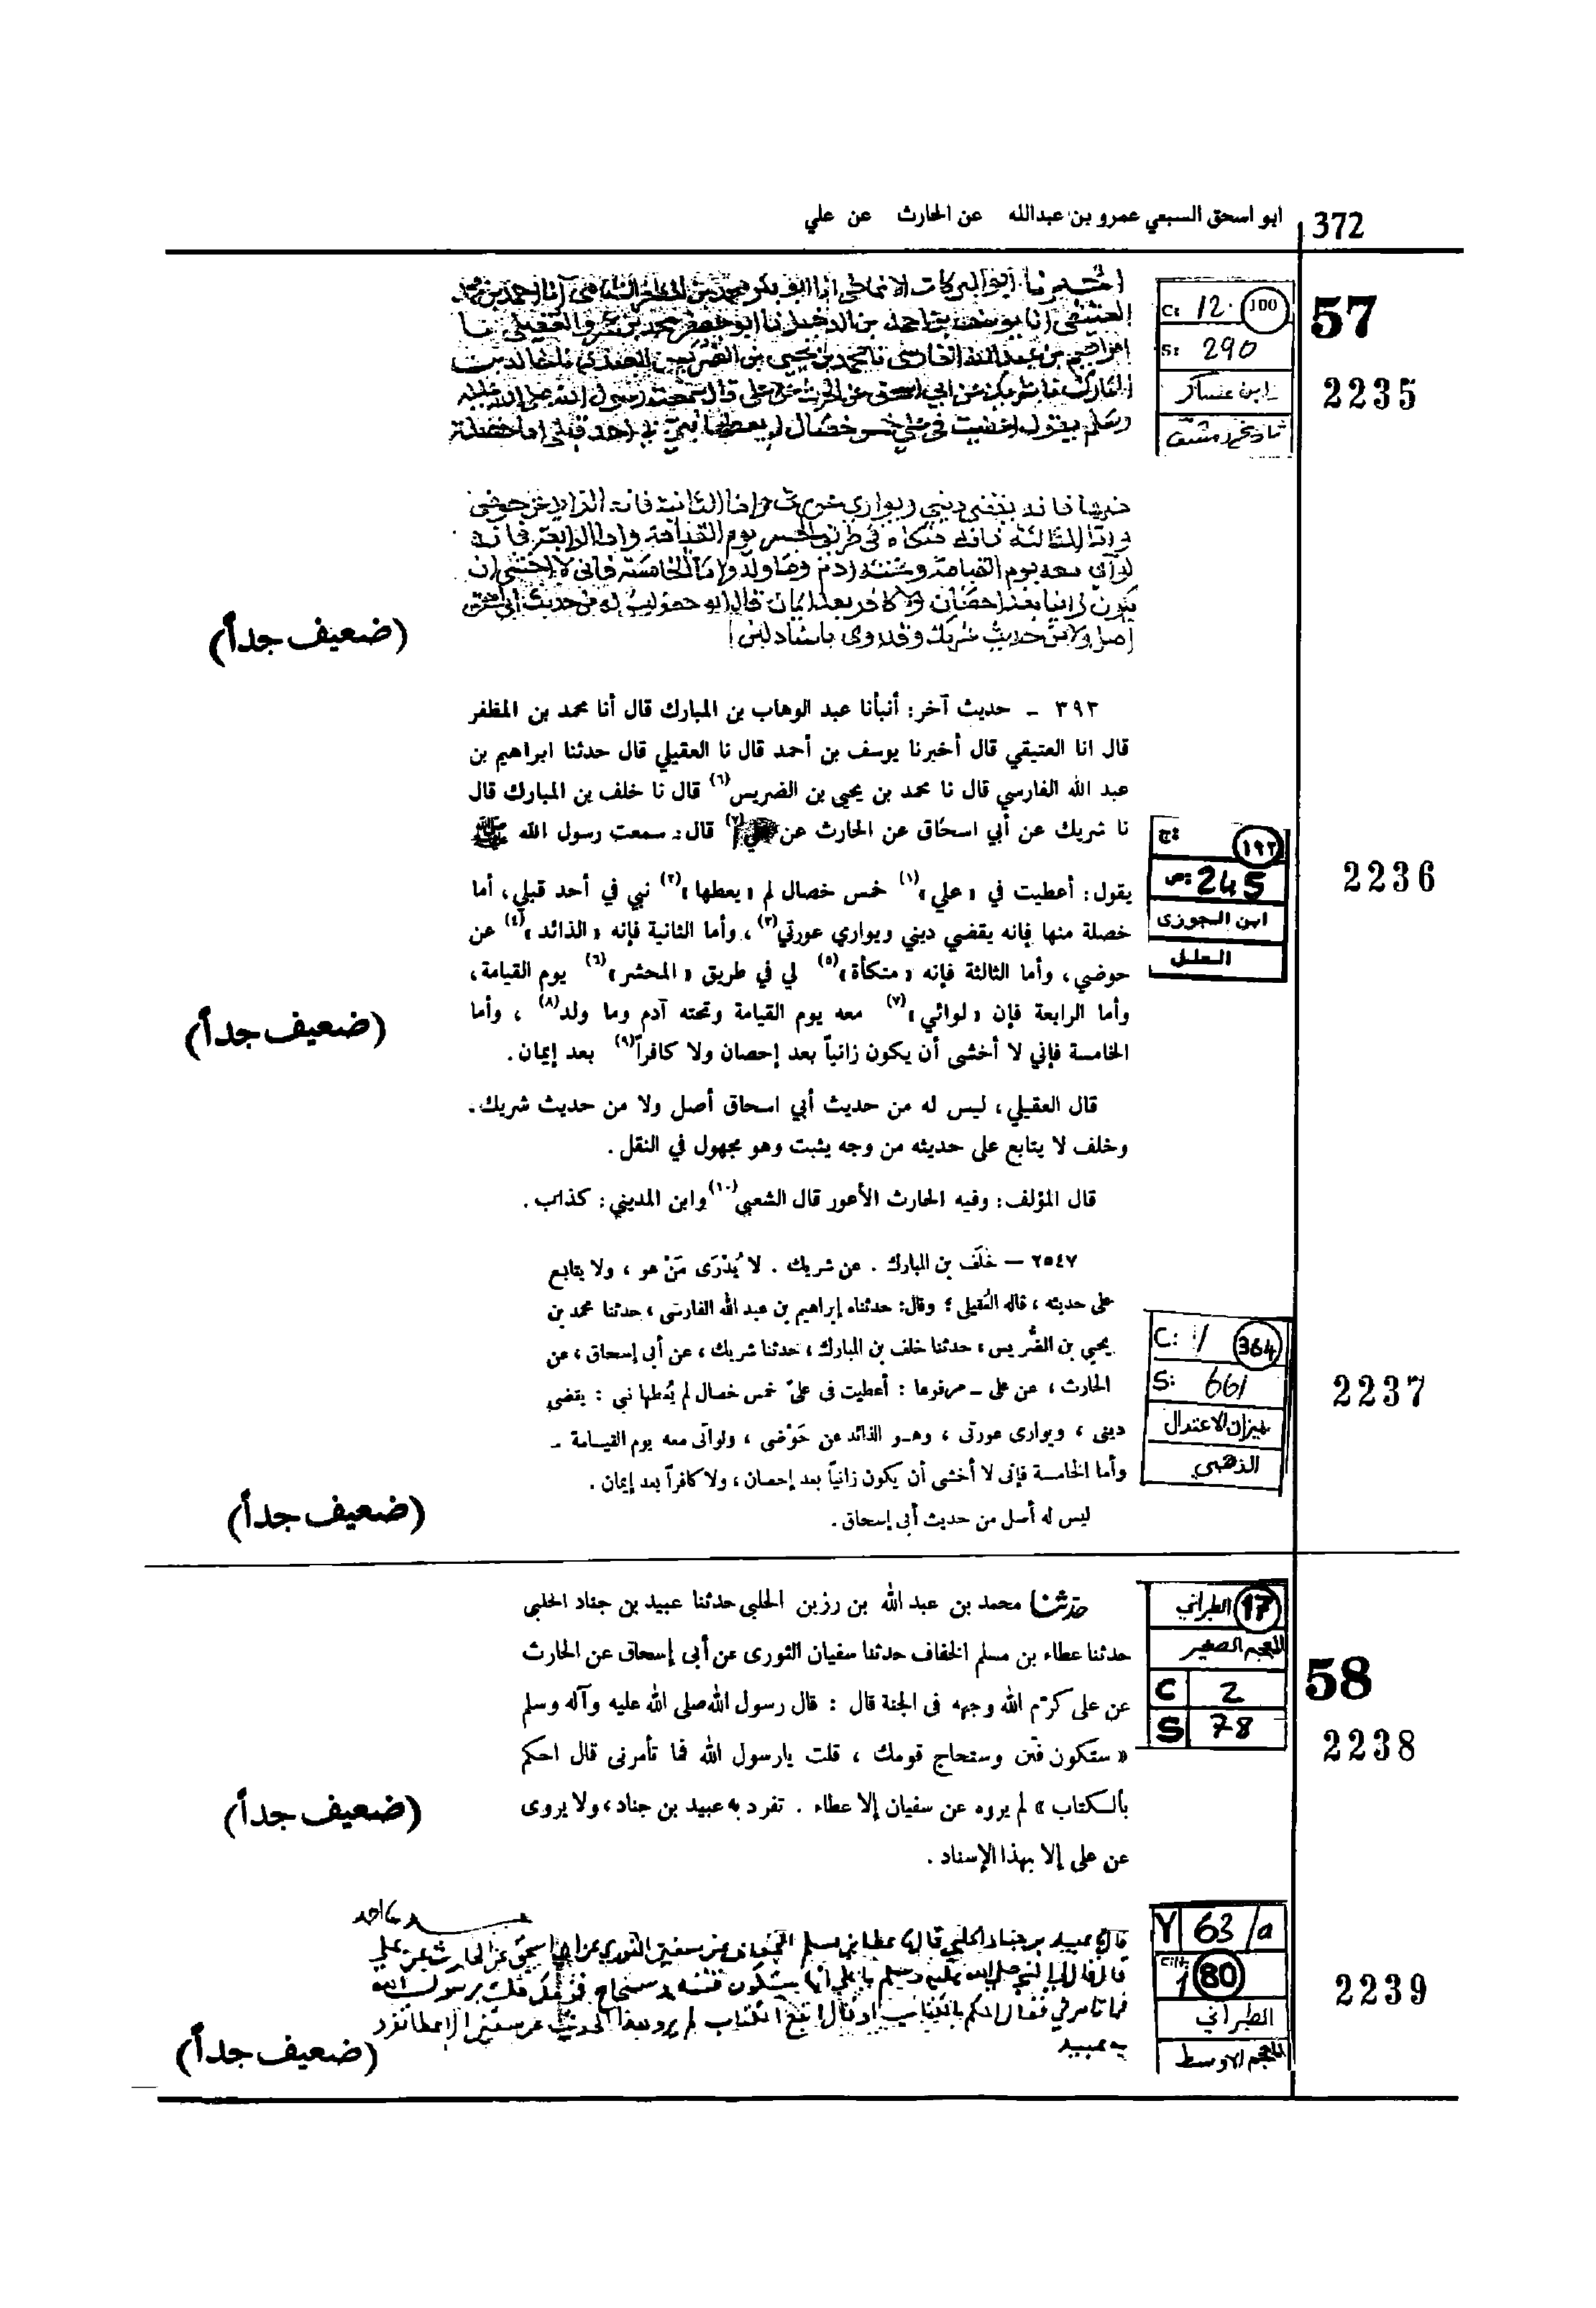 372
ابو اسحق السبعي عمرو بن عبدالله عن الحارث عن علي
57
2235
C: 12 100
S: 290
ابن عساكر
تاريخ دمشق
أخبرنا أبو البركات الانماطي انا ابو بكر محمد بن المظفر الشامي انا احمد بن محمد
العتيقي انا يوسف بن احمد بن الدخيل نا ابو جعفر محمد بن عمرو العقيلي نا
ابراهيم بن عبد الله الفارسي نا محمد بن يحيى بن الضريس نا خالد بن
المبارك نا شريك عن ابي اسحق عن الحرث عن علي قال سمعت رسول الله صلى الله عليه
وسلم يقول اعطيت في علي خمس خصال لم يعطها نبي في احد قبلي اما خصلة
منها فانه يقضي ديني ويواري عورتي واما الثانية فانه الذايد عن حوضي
واما الثالثة فانه متكاة لي في طريق الحشر يوم القيامة واما الرابعة فانه
لوآي معه يوم القيامة وتحته ادم وما ولد واما الخامسة فاني لا اخشى ان
يكون زانيا بعد احصان ولا كافر بعد ايمان قال ابو جعفر ليس له من حديث ابي اسحق
اصل ولا من حديث شريك وقد روى باسناد لين
(ضعيف جداً)
2236
ج: ١٩٢
ص: 245
ابن الجوزى
العلل
٣٩٣ - حديث آخر: أنبأنا عبد الوهاب بن المبارك قال أنا محمد بن المظفر
قال انا العتيقي قال أخبرنا يوسف بن أحمد قال نا العقيلي قال حدثنا ابراهيم بن
عبد الله الفارسي قال نا محمد بن يحيى بن الضريس(٦) قال نا خلف بن المبارك قال
نا شريك عن أبي اسحاق عن الحارث عن علي(٧) قال: سمعت رسول الله ﷺ
يقول: أعطيت في «علي»(١) خمس خصال لم «يعطها»(٢) نبي في أحد قبلي، أما
خصلة منها فإنه يقضي ديني ويواري عورتي(٣)، وأما الثانية فإنه «الذائد»(٤) عن
حوضي، وأما الثالثة فإنه «متكأة»(٥) لي في طريق «المحشر»(٦) يوم القيامة،
وأما الرابعة فإن «لوائي»(٧) معه يوم القيامة وتحته آدم وما ولد(٨)، وأما
الخامسة فإني لا أخشى أن يكون زانياً بعد إحصان ولا كافراً(٩) بعد إيمان.
قال العقيلي، ليس له من حديث أبي اسحاق أصل ولا من حديث شريك.
وخلف لا يتابع على حديثه من وجه يثبت وهو مجهول في النقل.
قال المؤلف: وفيه الحارث الأعور قال الشعبي(١٠) وابن المديني: كذاب.
(ضعيف جداً)
2237
C: 1 364
S: 661
ميزان الاعتدال
الذهبي
٢٥٤٧ — خَلَف بن المبارك. عن شريك. لا يُدْرَى مَنْ هو، ولا يتابع
على حديثه، قاله العُقيلى؛ وقال: حدثناه إبراهيم بن عبد الله الفارسى، حدثنا محمد بن
يحيى بن الضُّريس، حدثنا خلف بن المبارك، حدثنا شريك، عن أبى إسحاق، عن
الحارث، عن على - مرفوعا: أعطيت فى علىّ خمس خصال لم يُعطها نبي: يقضى
دينى، ويوارى عورتى، وهو الذائد عن حَوْضى، ولوائى معه يوم القيامة -
وأما الخامسة فإنى لا أخشى أن يكون زانياً بعد إحصان، ولا كافراً بعد إيمان.
ليس له أصل من حديث أبى إسحاق.
(ضعيف جداً)
58
2238
الطبراني 17
المعجم الصغير
C 2
S 78
حدثنا محمد بن عبد الله بن رزين الحلبى حدثنا عبيد بن جناد الحلبى
حدثنا عطاء بن مسلم الخفاف حدثنا سفيان الثورى عن أبى إسحاق عن الحارث
عن على كرّم الله وجهه فى الجنة قال : قال رسول الله صلى الله عليه وآله وسلم
« ستكون فتن وستحاج قومك ، قلت يارسول الله فما تأمرنى قال احكم
بالكتاب » لم يروه عن سفيان إلا عطاء . تفرد به عبيد بن جناد، ولا يروى
عن على إلا بهذا الإسناد .
(ضعيف جداً)
2239
Y 63/a
Cilt: 1 80
الطبراني
المعجم الاوسط
قال نا عبيد بن جناد الحلبي قال نا عطا بن مسلم الخفاف عن سفين الثوري عن ابي اسحق عن الحارث عن علي
قال قال لي النبي صلى الله عليه وسلم يا علي انها ستكون فتنة وستحاج قومك قلت يرسول الله
فما تامرني فقال احكم بالكتاب او قال اتبع الكتاب لم يرو هذا الحديث عن سفين الا عطا تفرد
به عبيد
(ضعيف جداً)